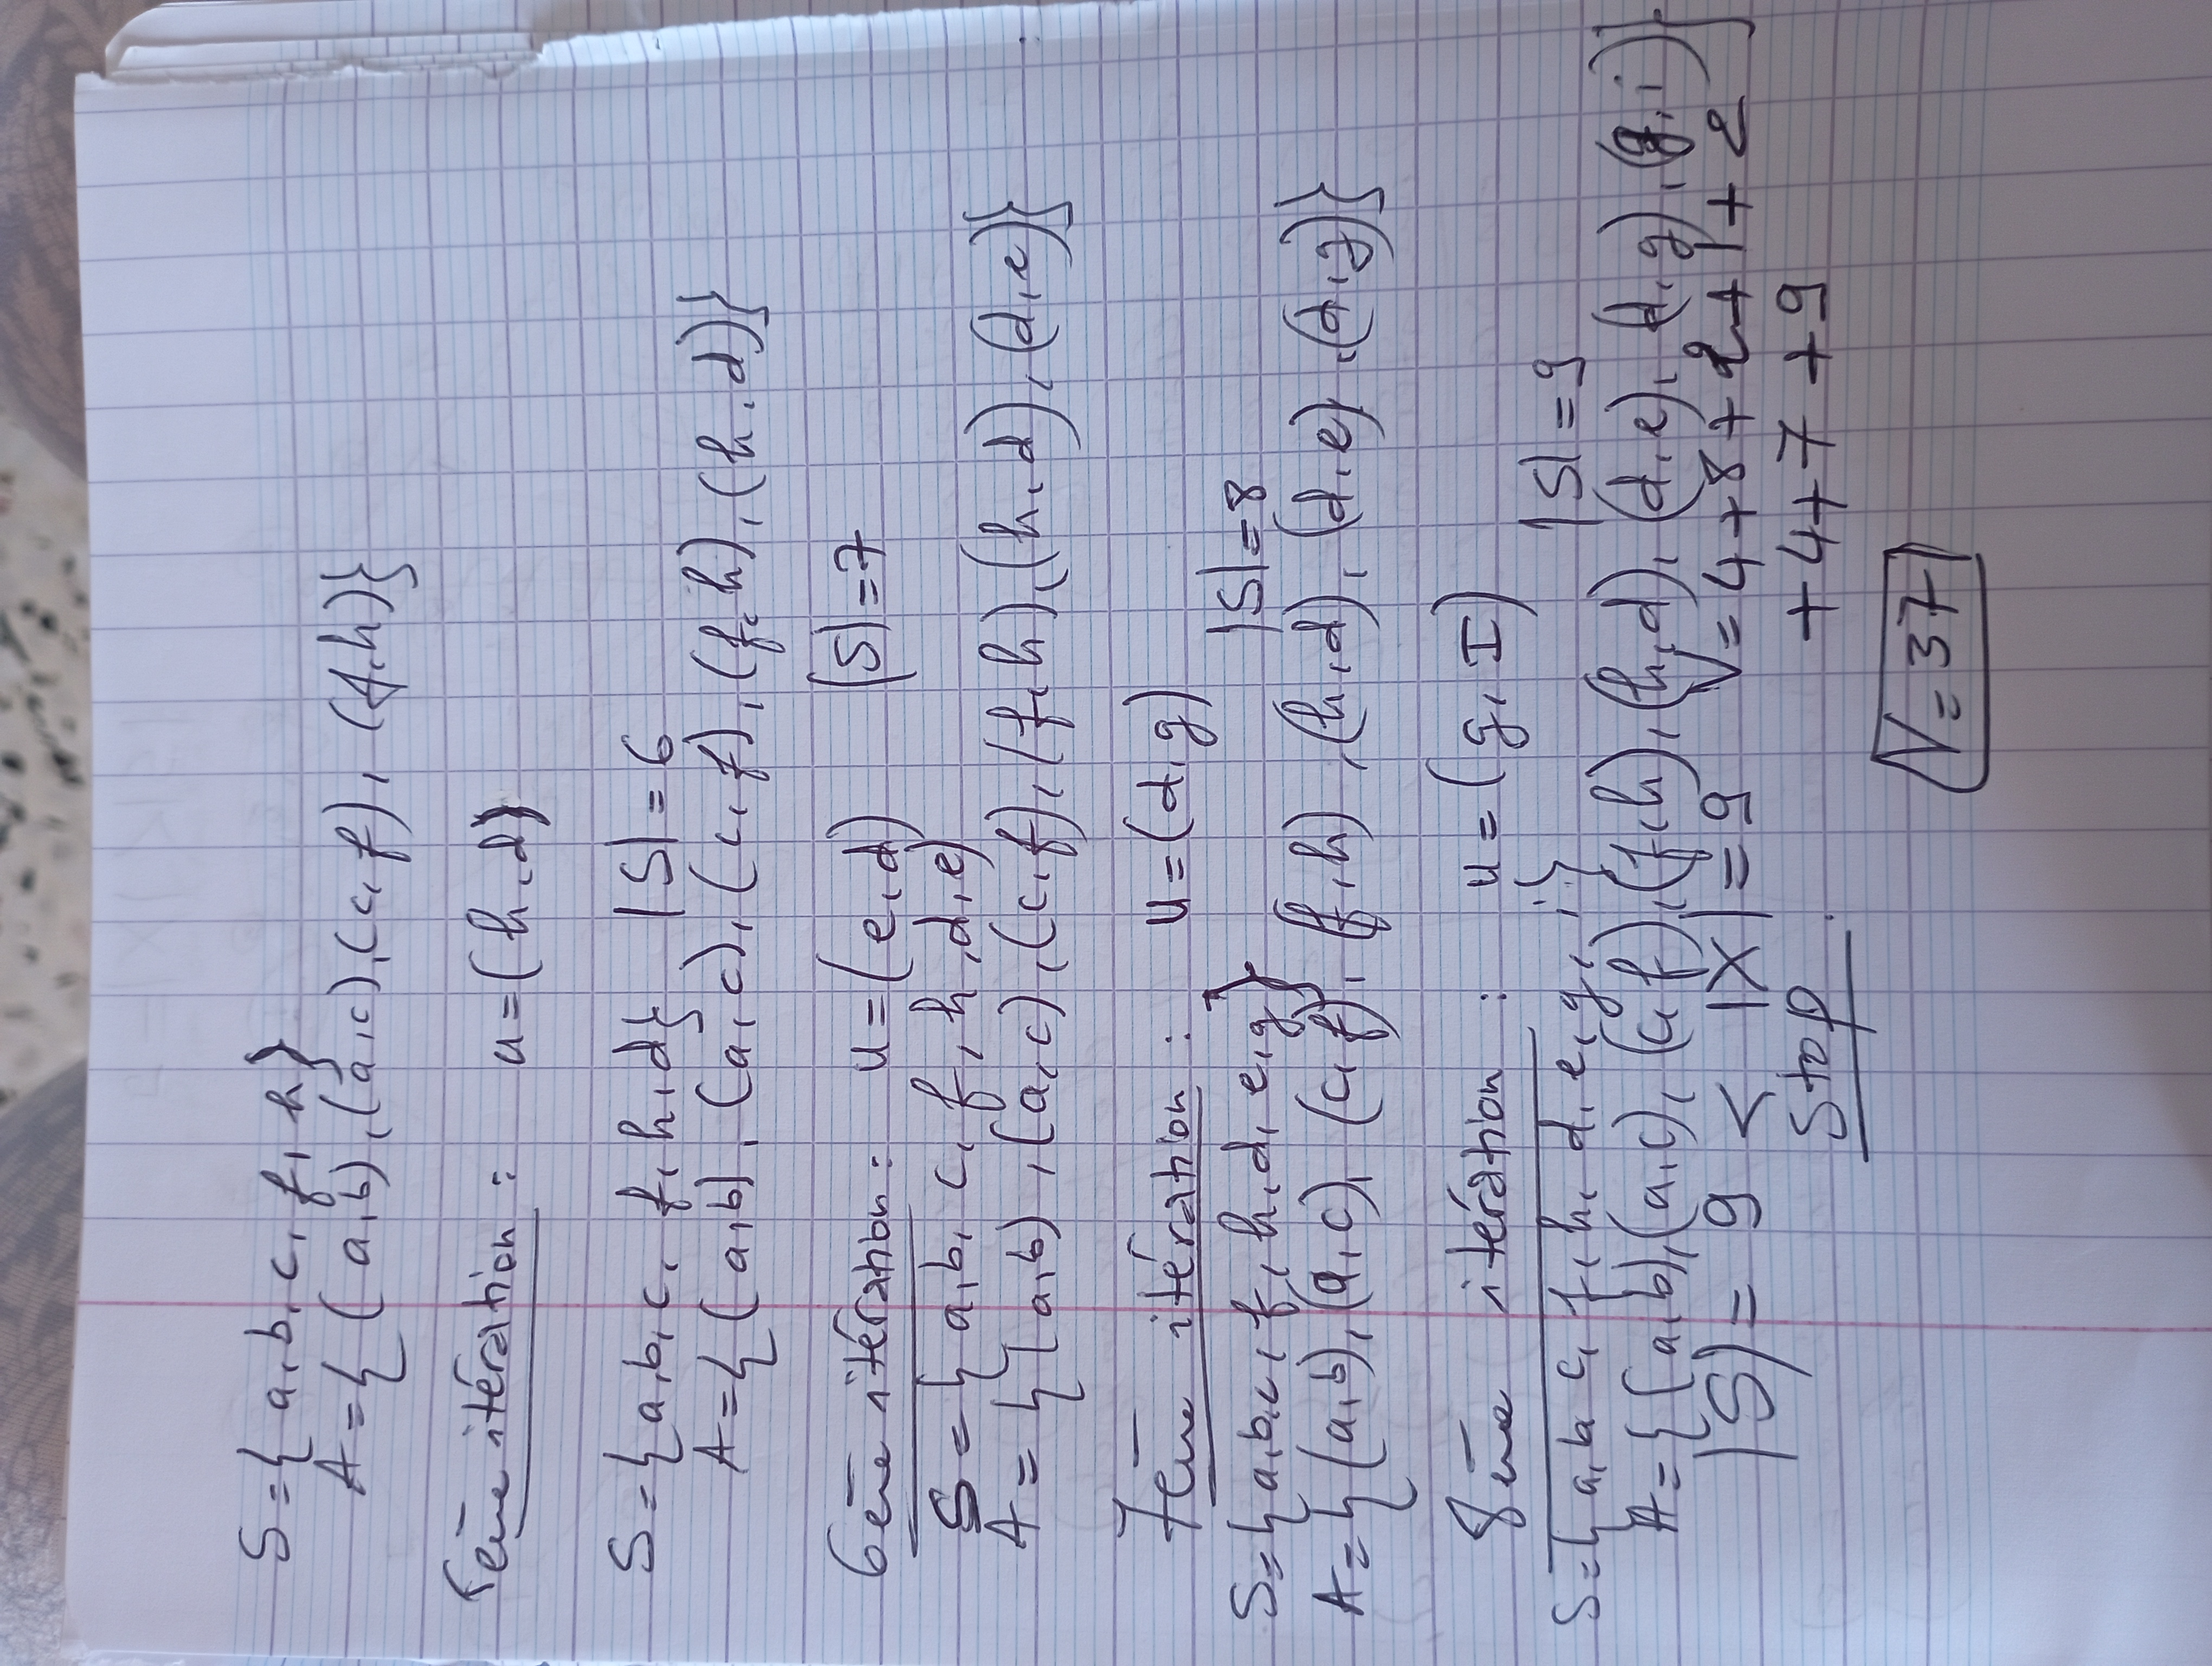 S = { a, b, c, f, h }
A = { (a, b), (a, c), (c, f), (f, h) }
5ème itération : u = (h, d)
S = { a, b, c, f, h, d } |S| = 6
A = { (a, b), (a, c), (c, f), (f, h), (h, d) }
6ème itération : u = (e, d) |S| = 7
S = { a, b, c, f, h, d, e }
A = { (a, b), (a, c), (c, f), (f, h), (h, d), (d, e) }
7ème itération : u = (d, g)
S = { a, b, c, f, h, d, e, g } |S| = 8
A = { (a, b), (a, c), (c, f), (f, h), (h, d), (d, e), (d, g) }
8ème itération : u = (g, I)
S = { a, b, c, f, h, d, e, g, i } |S| = 9
A = { (a, b), (a, c), (c, f), (f, h), (h, d), (d, e), (d, g), (g, i) }
|S| = 9 < |X| = 9 V = 4 + 8 + 2 + 1 + 2
Stop. + 4 + 7 + 9
V = 37